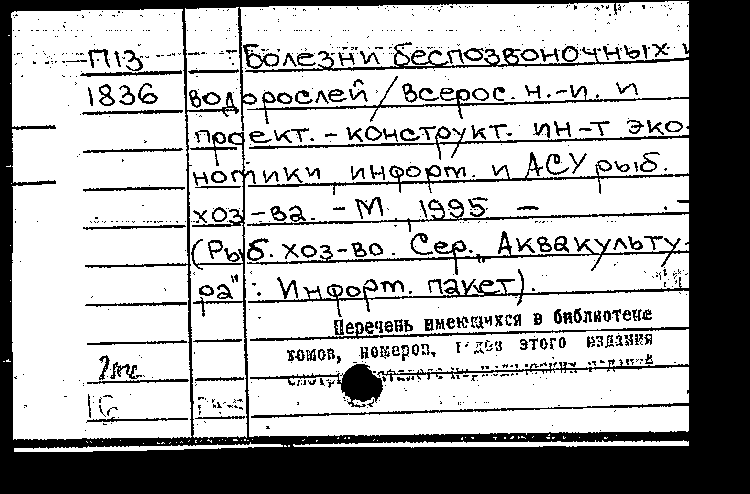 П13 Болезни беспозвоночных и
1836 водорослей / Всерос. н.-и. и
проект.-конструкт. ин-т эко-
номики, информ. и АСУ рыб.
хоз-ва. - М., 1995 - . -
(Рыб. хоз-во. Сер. „Аквакульту-
ра": Информ. пакет).
Перечень имеющихся в библиотеке
томов, номеров, годов этого издания